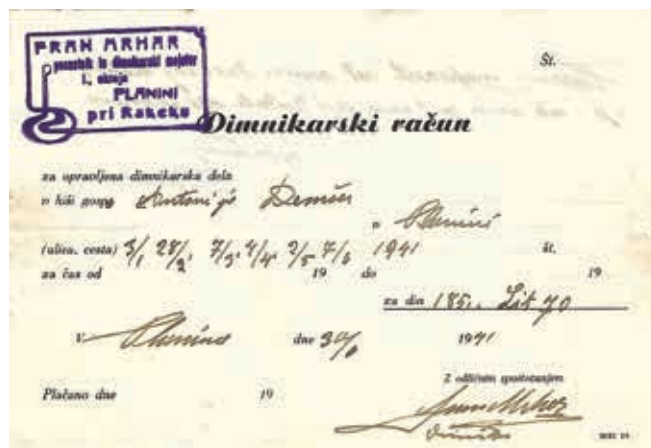 FRAN ARHAR
posestnik in dimnikarski mojster
I. okraja
PLANINI
pri Rakeku
Št.
Dimnikarski račun
za opravljena dimnikarska dela
v hiši gospe Antonije v Planini
(ulica, cesta) 3/1 28/2, 7/3, 4/4, 2/5 7/6 1941 št.
za čas od 19 do 19
za din 185.- Lit 70
V Planina dne 30/6 1941
Plačano dne 19
Z odličnim spoštovanjem